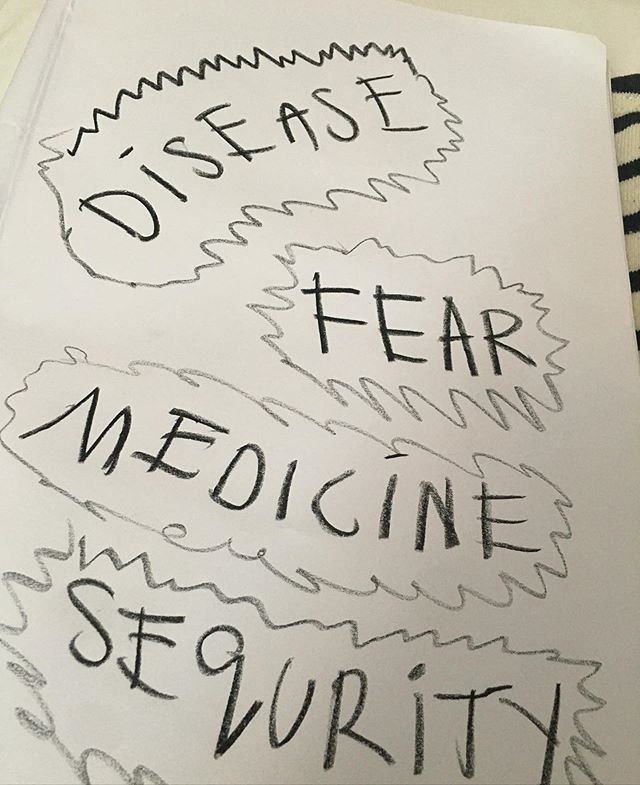 DiSEASE
FEAR
MEDICiNE
SEqURiTY